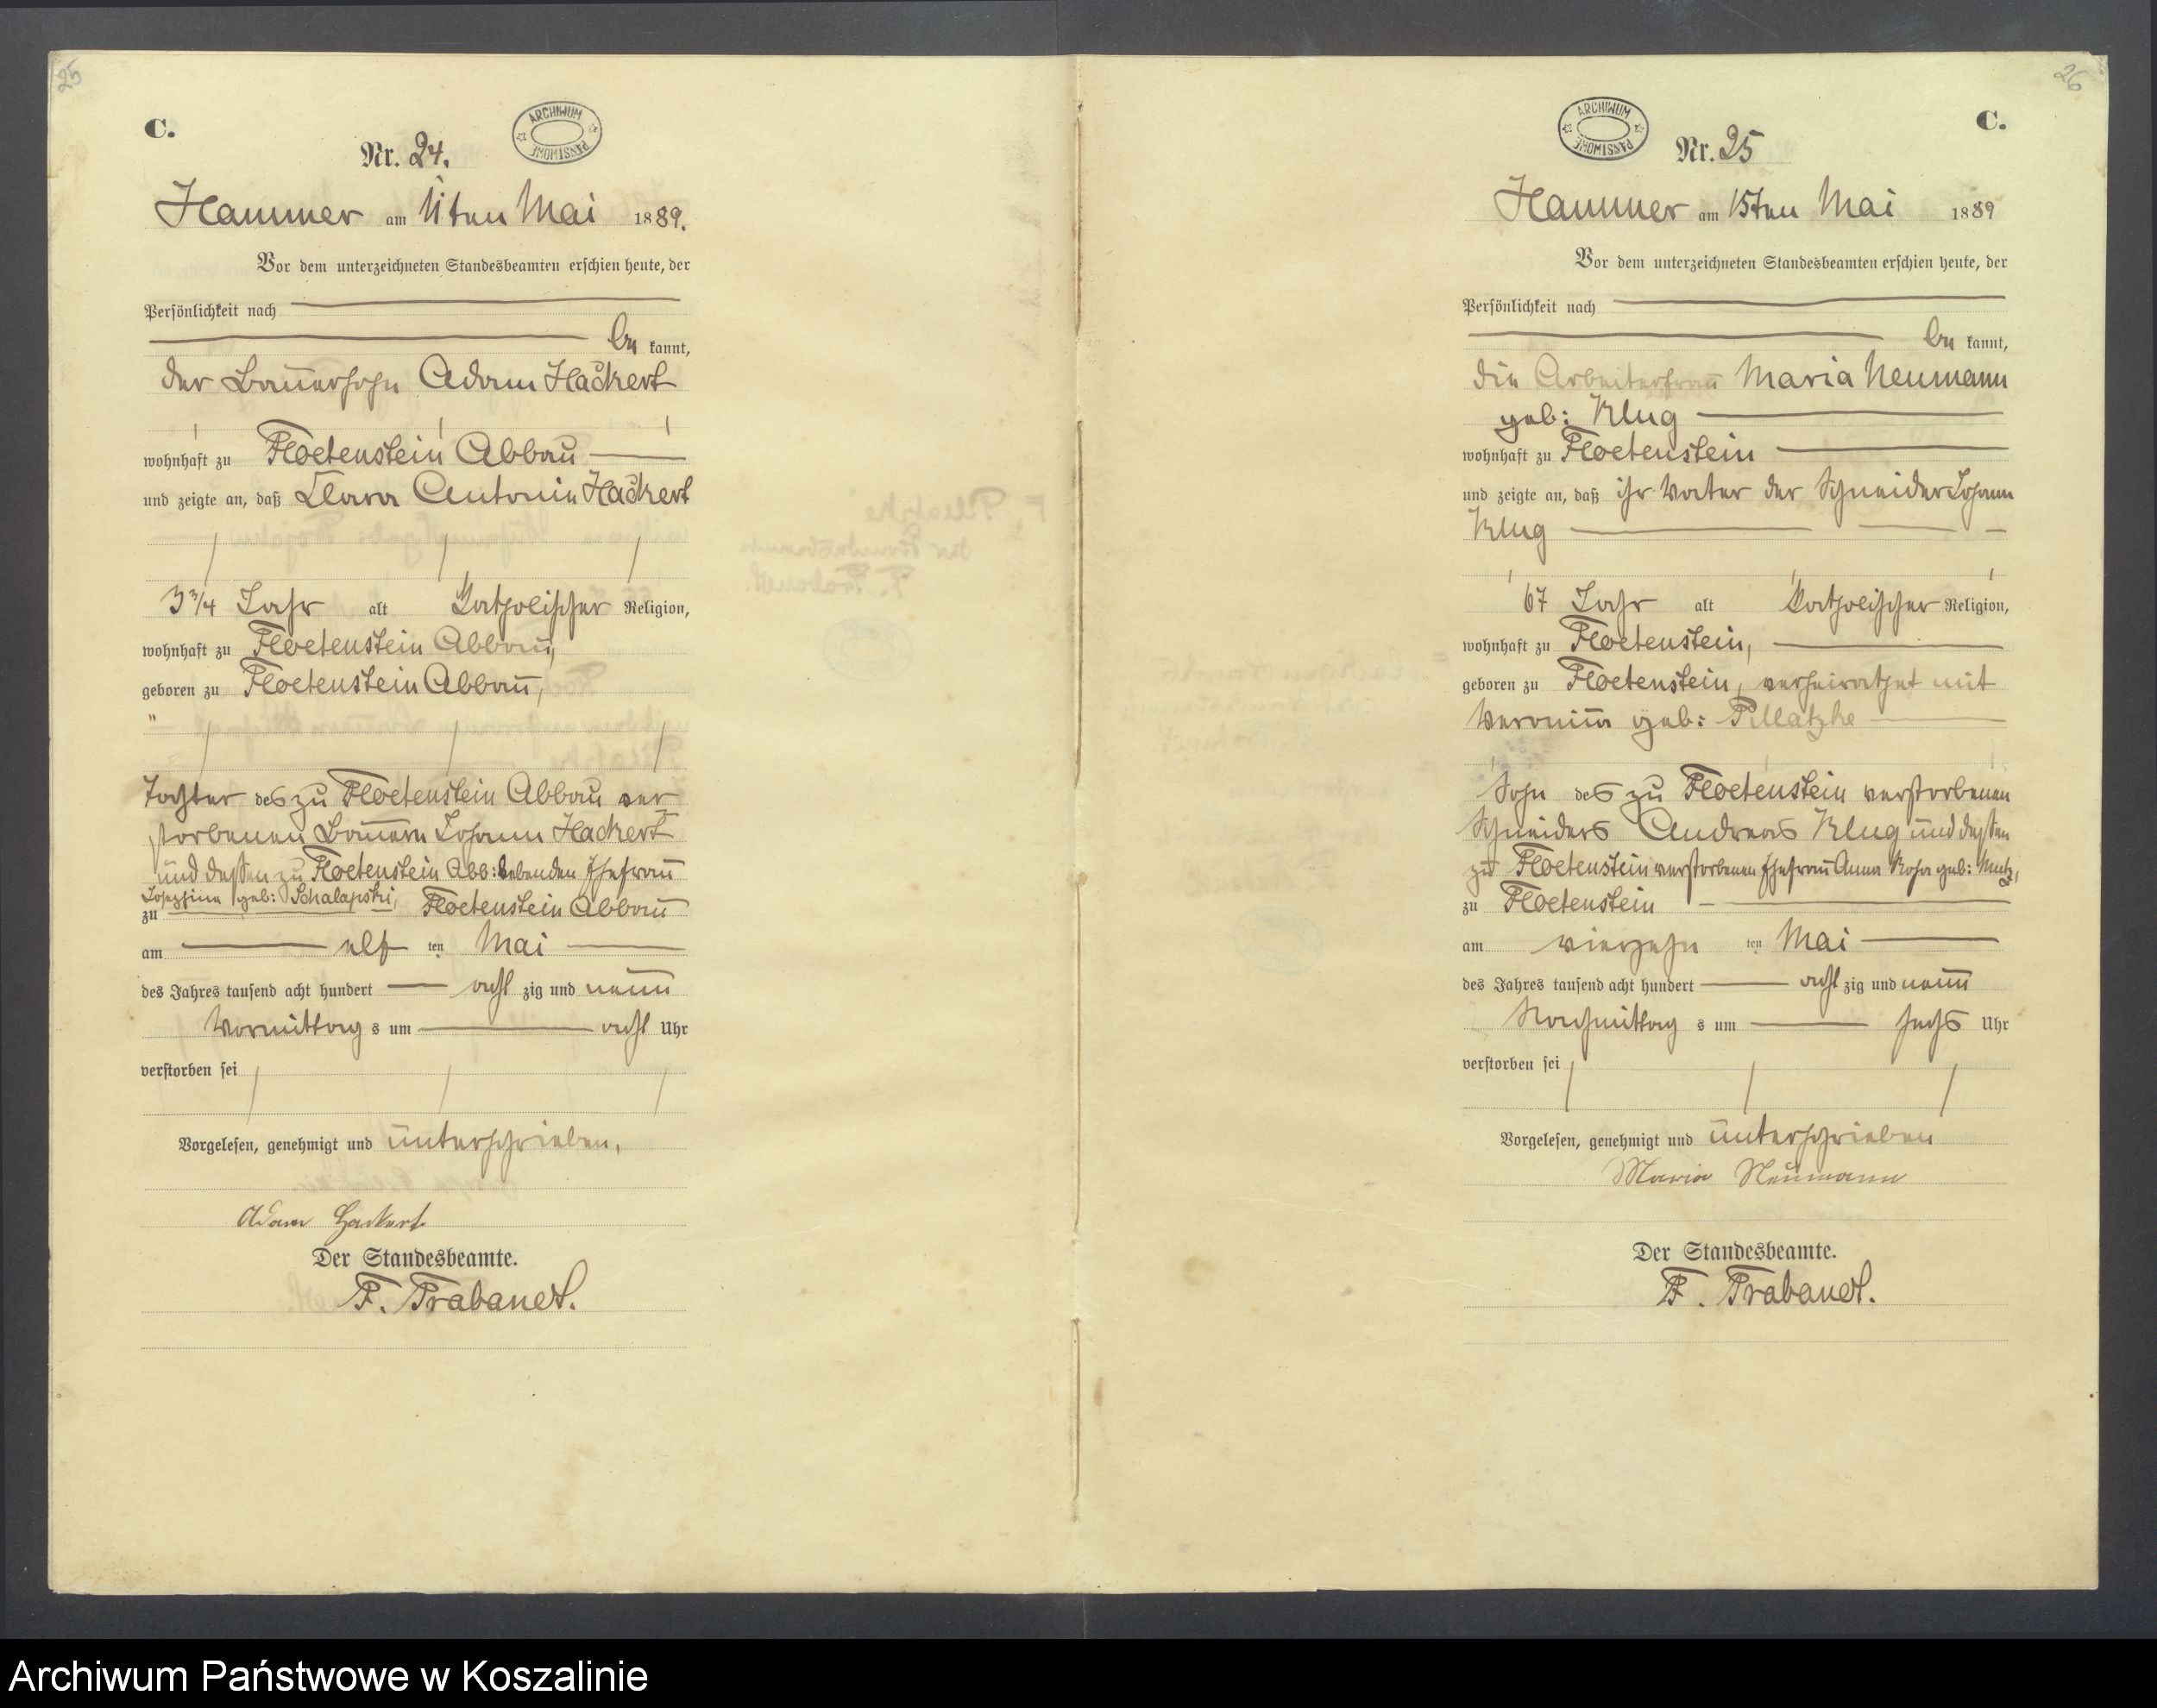 25
C.
ARCHIWUM PAŃSTWOWE
Nr. 24.
Hammer am 11ten Mai 1889.
Vor dem unterzeichneten Standesbeamten erschien heute, der
Persönlichkeit nach
be kannt,
der Bauersohn Adam Hackert
wohnhaft zu Floetenstein Abbau
und zeigte an, daß Clara Antonie Hackert
3 3/4 Jahr alt katholischer Religion,
wohnhaft zu Floetenstein Abbau,
geboren zu Floetenstein Abbau,
Tochter des zu Floetenstein Abbau ver
storbenen Bauern Johann Hackert
und dessen zu Floetenstein Abb: lebenden Ehefrau
Josephine geb: Schalapski,
zu Floetenstein Abbau
am elf ten Mai
des Jahres tausend acht hundert acht zig und neun
Vormittag s um acht Uhr
verstorben sei
Vorgelesen, genehmigt und unterschrieben,
Adam Hackert
Der Standesbeamte.
F. Trabandt.
26
C.
ARCHIWUM PAŃSTWOWE
Nr. 25
Hammer am 15ten Mai 1889
Vor dem unterzeichneten Standesbeamten erschien heute, der
Persönlichkeit nach
be kannt,
die Arbeiterfrau Maria Neumann
geb: Klug
wohnhaft zu Floetenstein
und zeigte an, daß ihr Vater der Schneider Johann
Klug
67 Jahr alt katholischer Religion,
wohnhaft zu Floetenstein,
geboren zu Floetenstein, verheirathet mit
geb: Pillatzke
Sohn des zu Floetenstein verstorbenen
Schneiders Andreas Klug und dessen
zu Floetenstein verstorbenen Ehefrau Anna Rosa geb:
zu Floetenstein
am vierzehn ten Mai
des Jahres tausend acht hundert acht zig und neun
Nachmittag s um sechs Uhr
verstorben sei
Vorgelesen, genehmigt und unterschrieben
Maria Neumann
Der Standesbeamte.
F. Trabandt.
Archiwum Państwowe w Koszalinie